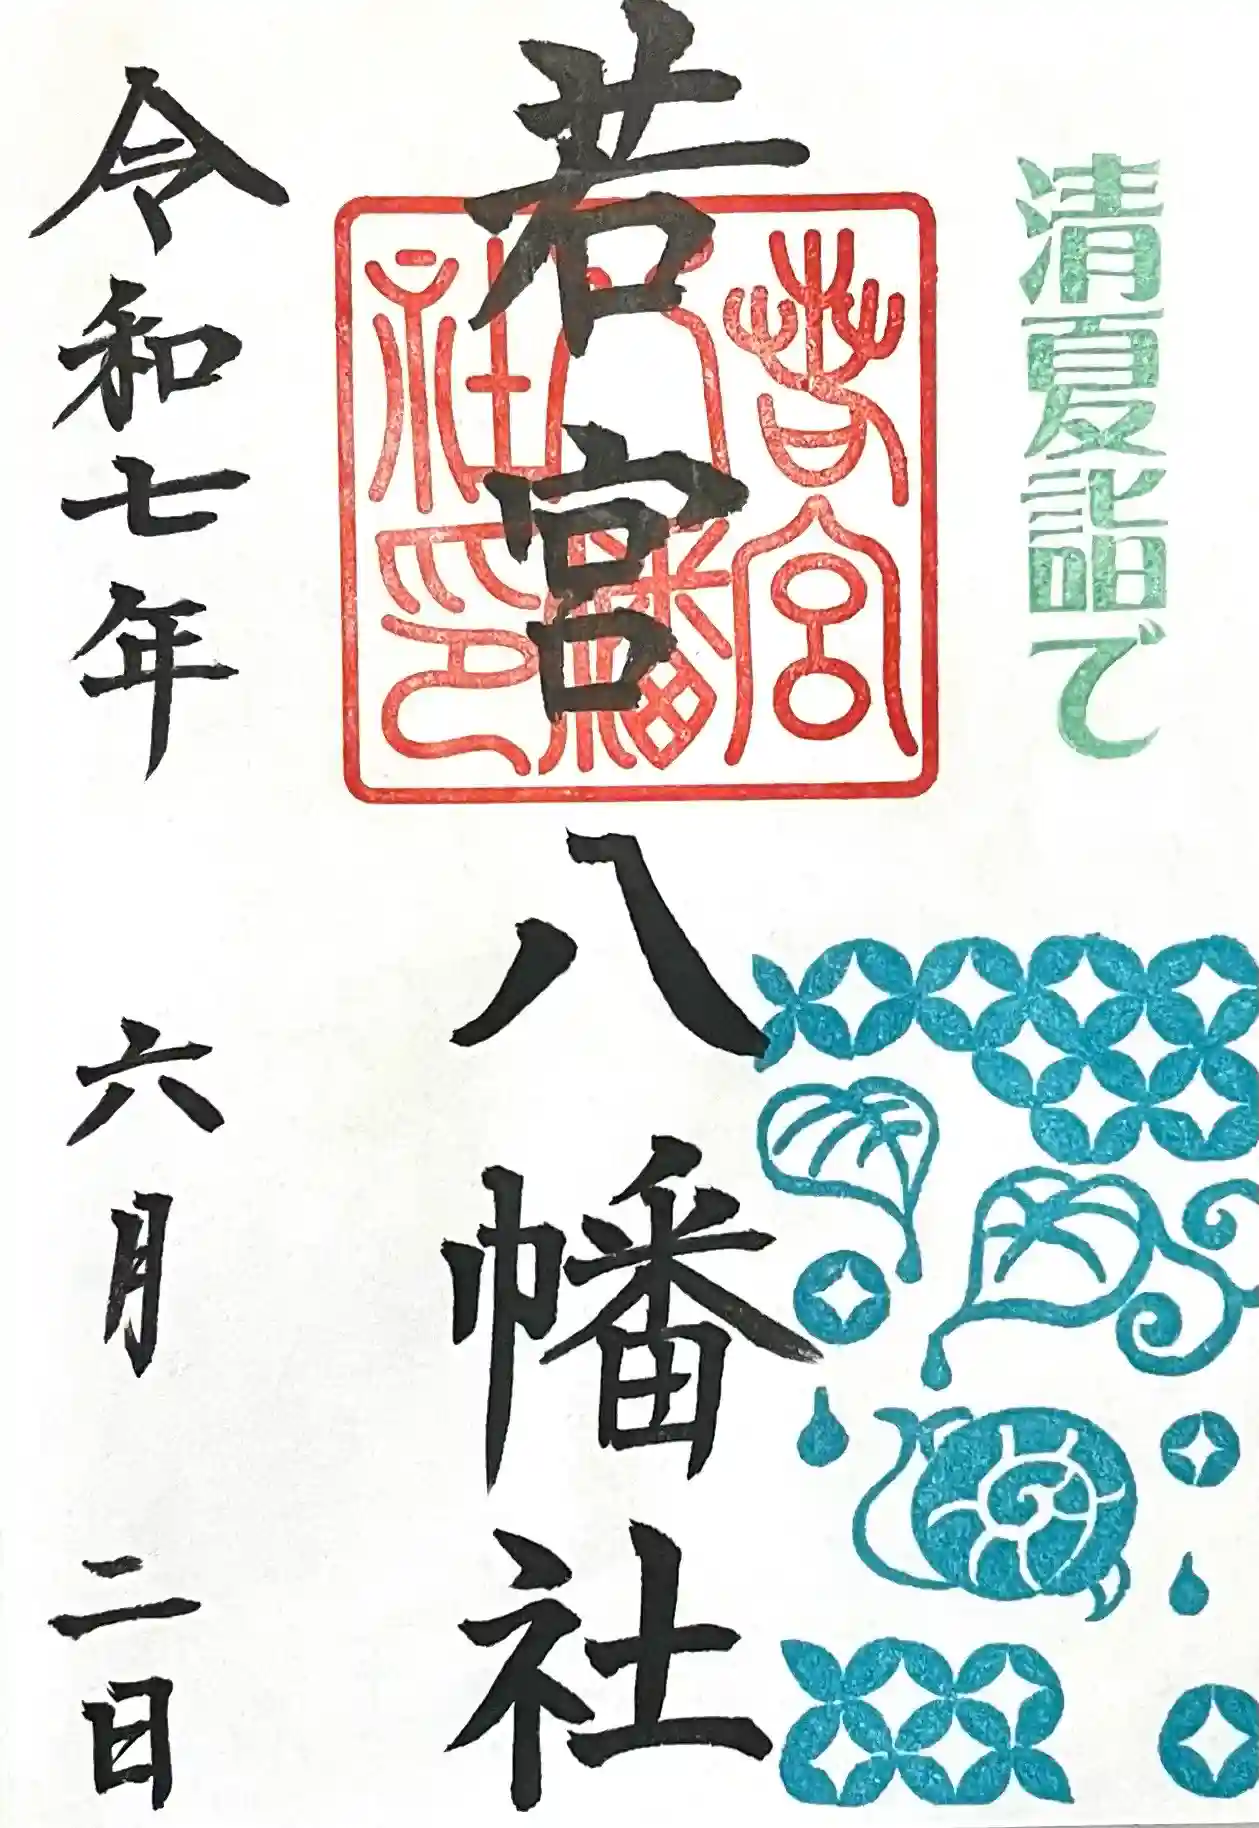 清夏詣で
若宮八幡社
若宮
八幡
社印
令和七年 六月 二日